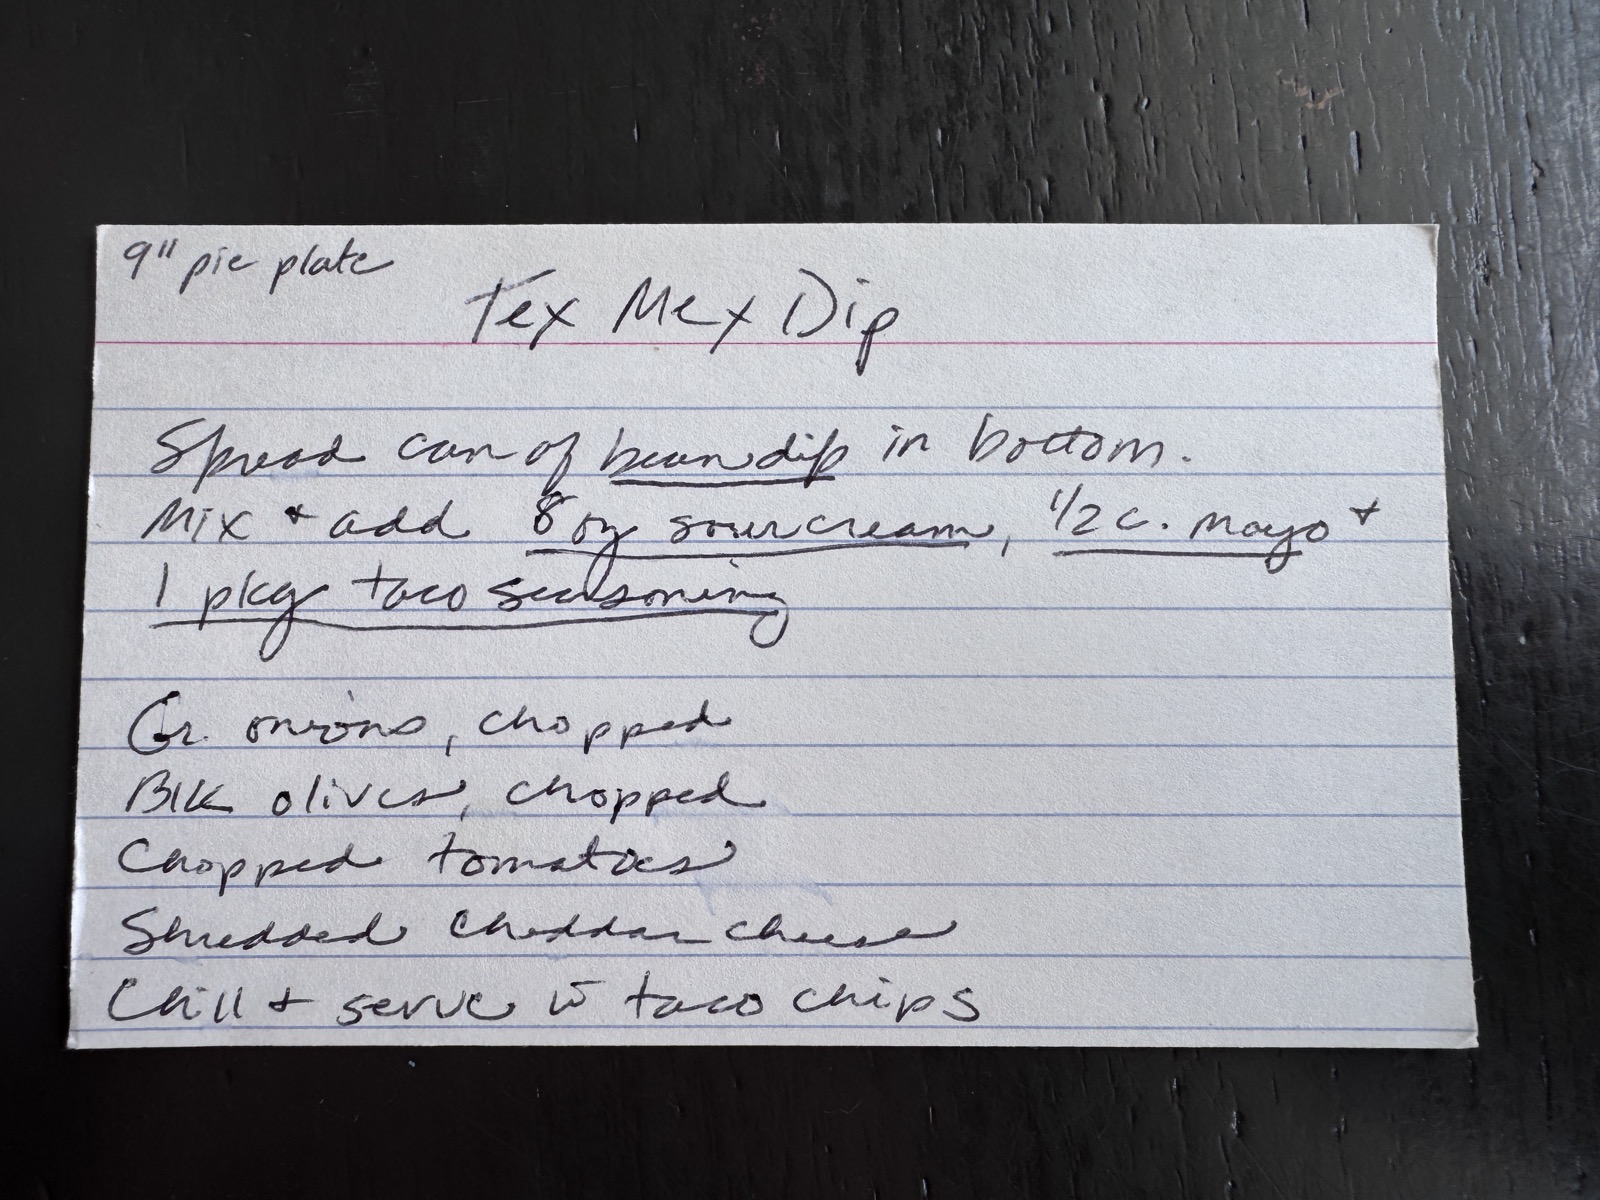 9" pie plate
Tex Mex Dip
Spread can of bean dip in bottom.
Mix + add 8 oz sour cream, 1/2 c. mayo +
1 pkg taco seasoning
Gr. onions, chopped
Blk olives, chopped
Chopped tomatoes
Shredded cheddar cheese
Chill + serve w̄ taco chips